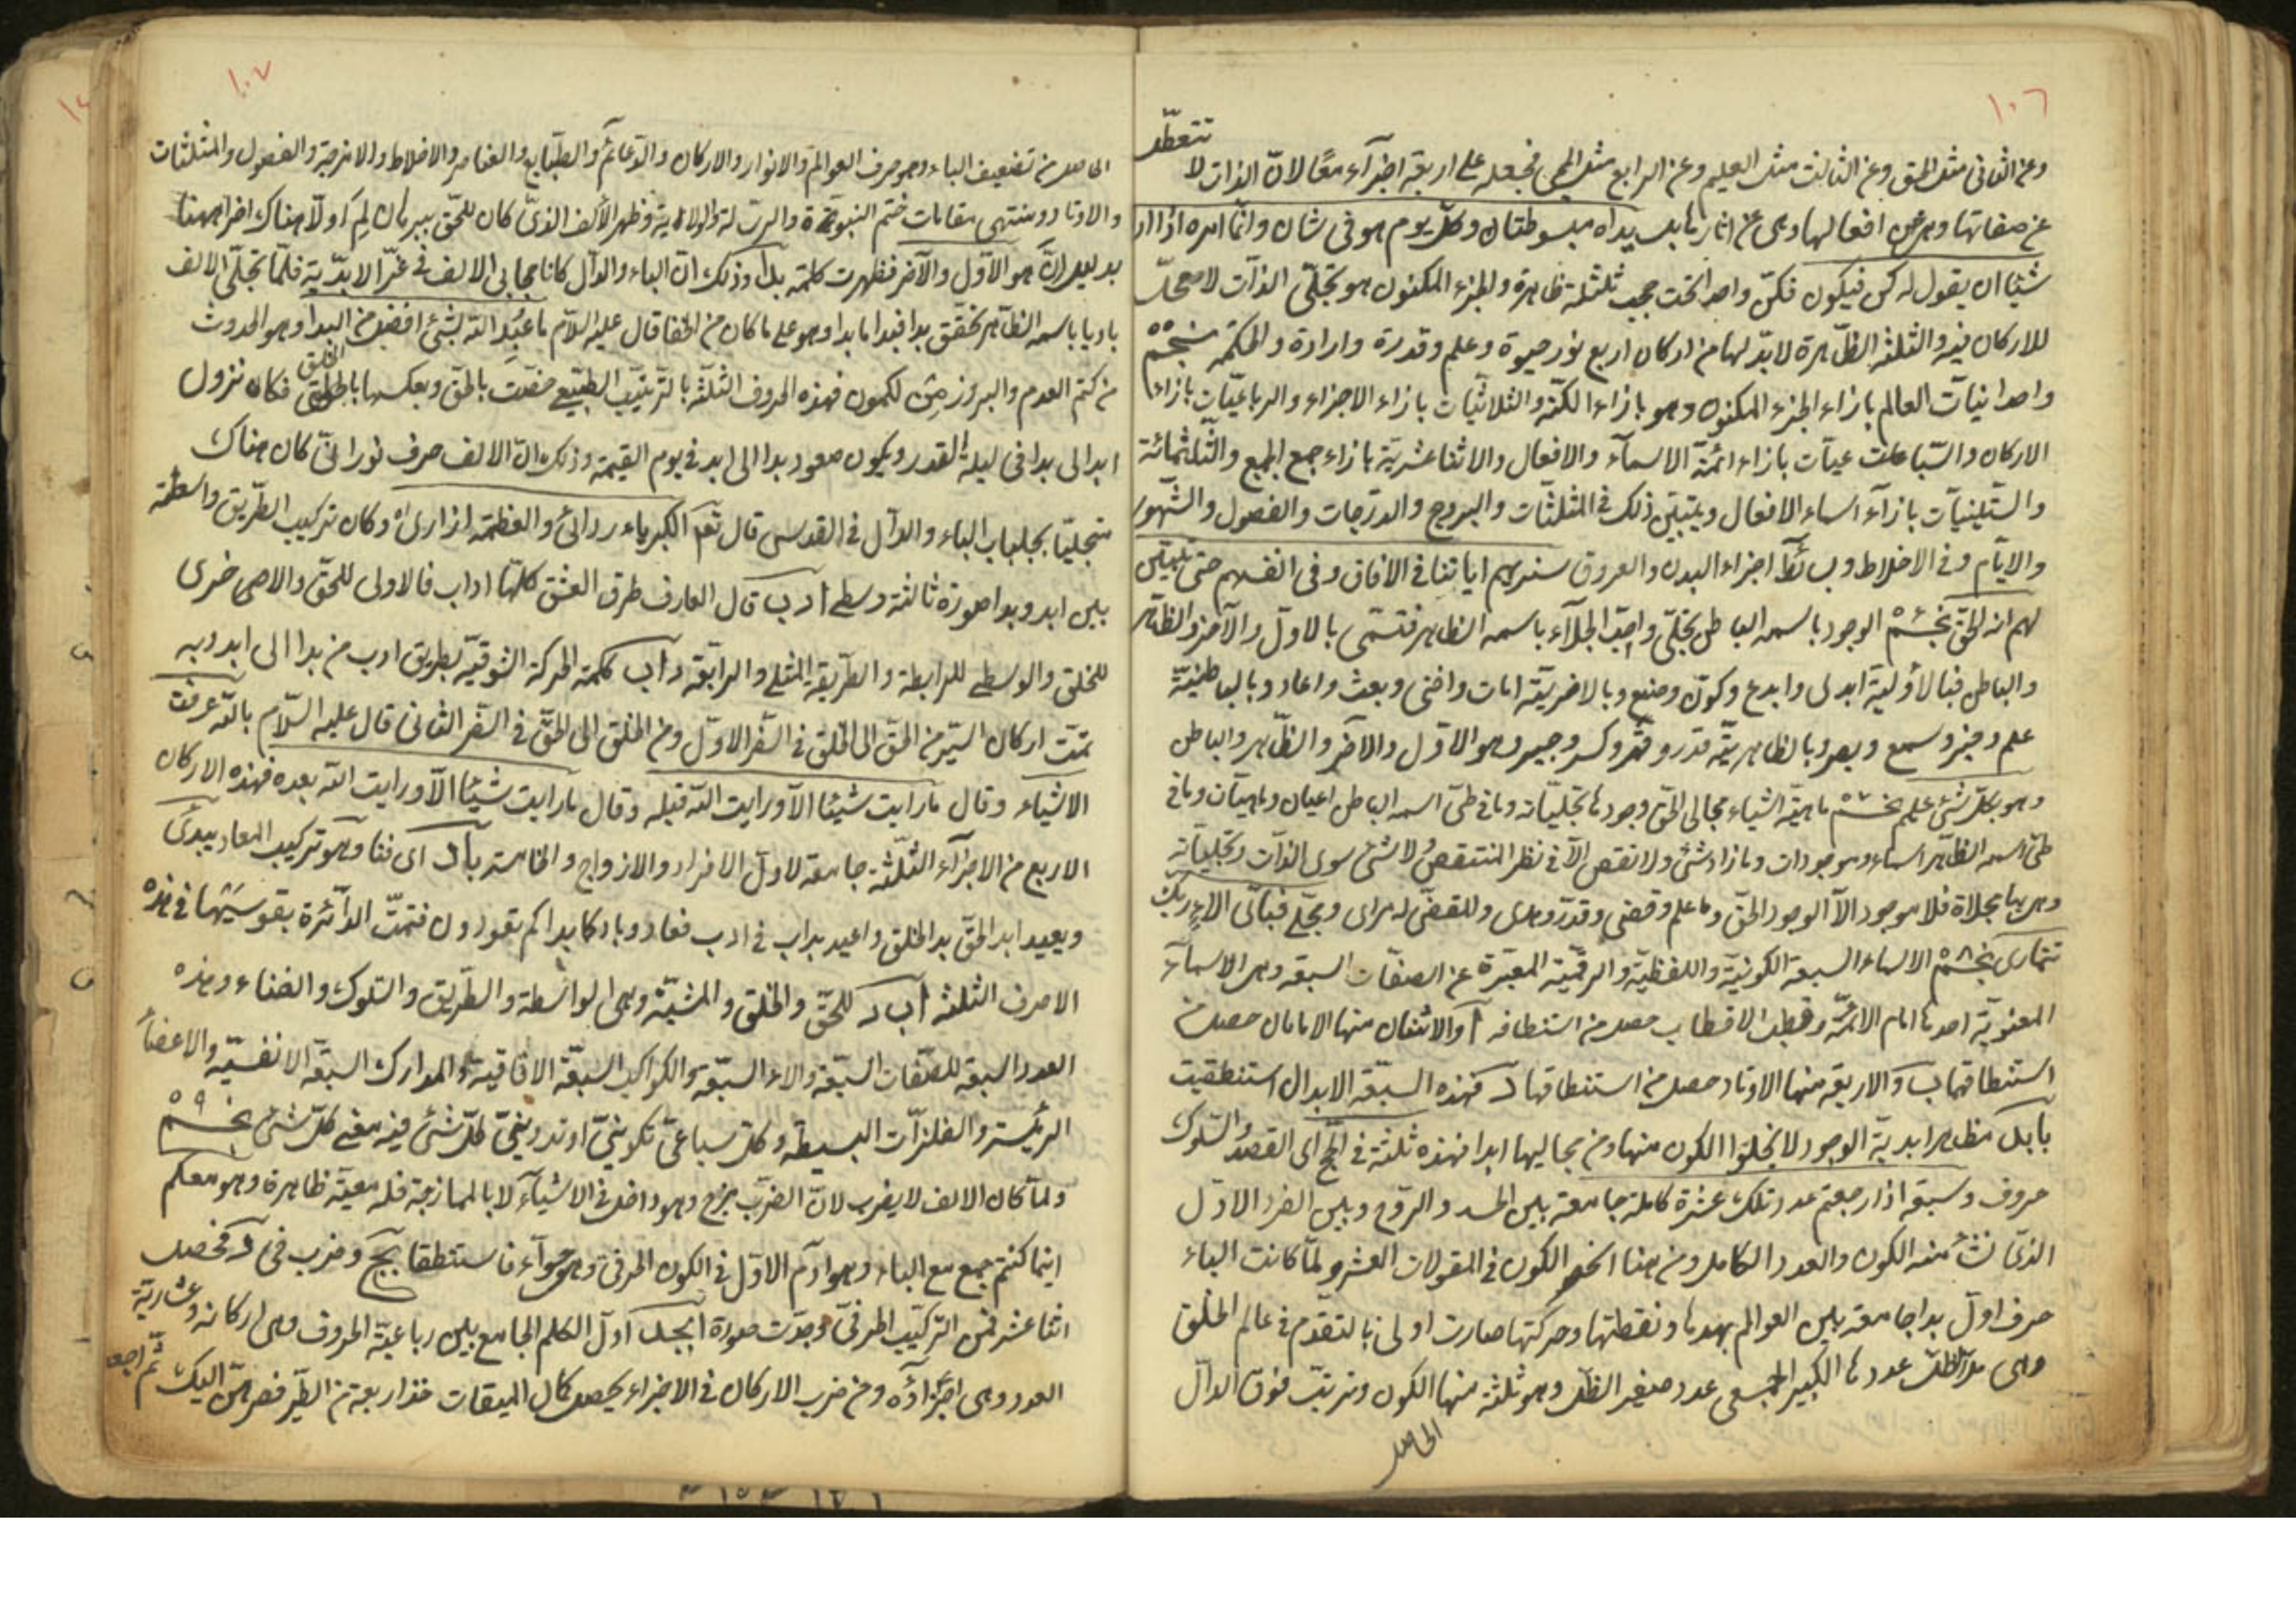 ١٠٦
وعن الثانى مثل الحق وعن الثالث مثل العليم وعن الرابع مثل الحى فجعله على اربعة اجزآء معًا لانّ الذات لا تتعطّل
عن صفاتها وهى عن افعالها وهى عن اثارها بل يداه مبسوطتان وكلّ يوم هو فى شان وانّما امره اذا اراد
شيئا ان يقول له كن فيكون فكنّ واحدا تحت حجب ثلثلة ظاهرة والجزء المكنون هو تجلّى الذآت لا محلّ
للاركان فيه والثلثة الظاهرة لابدّ لها من اركان اربع نور حيوة وعلم وقدرة وارادة والحكمة نجم ٥٥
واحدانيآت العالم بازاء الجزء المكنون وهو بازاء الكنه والثلاثيات بازاء الاجزاء والرباعيّات بازاء
الاركان والسّباعيآت بازاء ائمّة الاسمآء والافعال والاثناعشريّة بازاء جمع الجمع والثّلثمائة
والسّتينيآت بازآء اسماء الافعال ويتبيّن ذلك فى المثلثآت والبروج والدرّجات والفصول والشّهور
والايآم وفى الاخلاط وبسائط اجزاء البدن والعروق سنريهم اياتنا فى الافاق وفى انفسهم حتى يتبيّن
لهم انه الحق نجم ٥٦ الوجود باسمه الباطن تجلّى واحبّ الجلآء باسمه الظاهر فتسمّى بالاول والآخر والظاهر
والباطن فبالأولية ابدى وابدع وكوّن وصنع وبالاخريّة امات وافنى وبعث واعاد وبالباطنيّة
علم وخبر وسمع وبصر وبالظاهريّة قدر وقهر وكسر وجبر وهو الاوّل والآخر والظّاهر والباطن
وهو بكلّ شئ عليم نجم ٥٧ ماهيّة اشياء مجالى الحقّ وجودها تجلّياته وما فى طىّ اسمه الباطن اعيان وماهيآت وما فى
طىّ اسمه الظاهر اسماء وموجودات وما زاد شئ ولا نقص الآ فى نظر المنتقص ولا شئ سوى الذآت وتجلّياته
وهى بها مجلاة فلا موجود الآ الوجود الحقّ وما علم وقضى وقدّر وهدى وللقضى له مراى ومجلى فباىّ الآء ربك
تتمارى نجم ٥٨ الاسماء السبعة الكونيّة واللفظيّة والرقميّة المعبّرة عن الصفات السبعة وهى الاسمآء
المعنويّة احدها امام الائمّة وقطب الاقطاب حصل من استنطاقه آ والاثنان منها الامامان حصل من
استنطاقهما ب والاربعة منها الاوتاد حصل من استنطاقها د فهذه السبّعة الابدال استنطقيت
بابك مظاهر ابدية الوجود لا تخلوا الكون منها ومن مجاليها ابدا فهذه ثلثة فى الحج اى القصد والسّلوك
حروف وسبعة اذا رجعتم عدد تلك عشرة كاملة جامعة بين الجسد والروّح وبين الفرد الاوّل
الذى نشأ منه الكون والعدد الكامل ومن هنا انحصر الكون فى المقولات العشر ولمّا كانت الباء
حرف اوّل بدا جامعة بين العوالم بمدها ونقطتها وحركتها صارت اولى بالتقدّم فى عالم الخلق
وهى عددها الكبير الجمعى عدد صغير الظلّ وهو ثلثة منها الكون وترتبت فوق الدآل
الحاصل
١٠٧
الحاصل من تضعيف الباء وهو حرف العوالم والانوار والاركان والدّعائم والطبّايع والعناصر والاخلاط والامزجة والفصول والمثلثات
والاوتاد ومنتهى مقامات ختم النبوة والرسالة والولاية وظهر الألف الذىّ كان للحقّ ببرهان لِمَ اولّا هناك اخرا ههنا
بدليل انّ هو الاوّل والآخر فظهرت كلمة بدا وذلك انّ الباء والدآل كانا حجابى الالف فى عزّ الابدّية فلمّا تجلّى الالف
باديا باسمه الظاهر تحقّق بدا فبدا ما بدا وهو على ما كان من الخفا قال عليه السّلام ما عُبِدَ الله بشئ افضل من البدا وهو الحدوث
من كتم العدم والبروز من الكمون فهذه الحروف الثلثّة بالترتيب الطبيعى خصّت بالحق وبعكسها بالخلق فكان نزول
ابد الى بدا فى ليلة القدر ويكون صعود بدا الى ابد فى يوم القيمة وذلك انّ الالف حرف نورانىّ كان هناك
متجليّا بجلباب الباء والدآل فى القدسى قال تعم الكبرياء ردائى والعظمة ازارى وكان تركيب الطّريق واسطة
بين ابد وبدا صورة ثالثة وسطى ادب قال العارف طرق العشق كلّها اداب فالاولى للحقّ والاخرى
للخلق والوسطى للرابطة والطّريقة المثلى والرابعّة داب كلمة الحركة الشوقيّة بطريق ادب من بدا الى ابد وبه
تمّت اركان السّير من الحقّ الى الخلق فى السّفر الاوّل ومن الخلق الى الحقّ فى السّفر الثانى قال عليه السّلام بالله عرفت
الاشياء وقال ما رايت شيئا الآ ورايت الله قبله وقال ما رايت شيئا الآ ورايت الله بعده فهذه الاركان
الاربع من الاجزآء الثلثّة جامعة لاول الافراد والازواج والخامسة باد اى فنا وهو تركيب المعاد يبدئ
ويعيد ابد الحقّ بدا الخلق واعيد بداب فى ادب فعاد وباد كما بداكم تعودون فتمّت الدآئرة بقوسيّها فى هذه
الاحرف الثلثة آ ب د للحقّ والخلق والمشيّة وهى الواسطة والطّريق والسّلوك والفناء وهذه
العدد السبعة للصّفات السبعّة والاسماء السبعّة والكواكب السبعّة الافاقيّة والمدارك السبعّة الانفسيّة والاعضاء
الرئيسة والفلزآت البسيطة وكلّ سباعىّ تكوينىّ او تدوينىّ كلّ شئ فيه معنى كلّ شئ نجم ٥٩
ولمّا كان الالف لا يضرب لانّ الضرّب مزج وهو داخل فى الاشيآء لا بالممازجة فله معيّة ظاهرة وهو معكم
اينما كنتم جمع مع الباء وهو ادم الاوّل فى الكون الحرفىّ وهى حوآء فاستنطقا بجَ وضرب فى د فحصل
اثنا عشر فمن التركيّب الحرفىّ وجدّت صورة ابجد اول الكلم الجامع بين رباعيّة الحروف وهى اركانه وعشاريّة
العدد وهى اجزاؤه ومن ضرب الاركان فى الاجزاء يحصل كمال الميقات فخذ اربعة من الطّير فصرهنّ اليك ثمّ اجعل